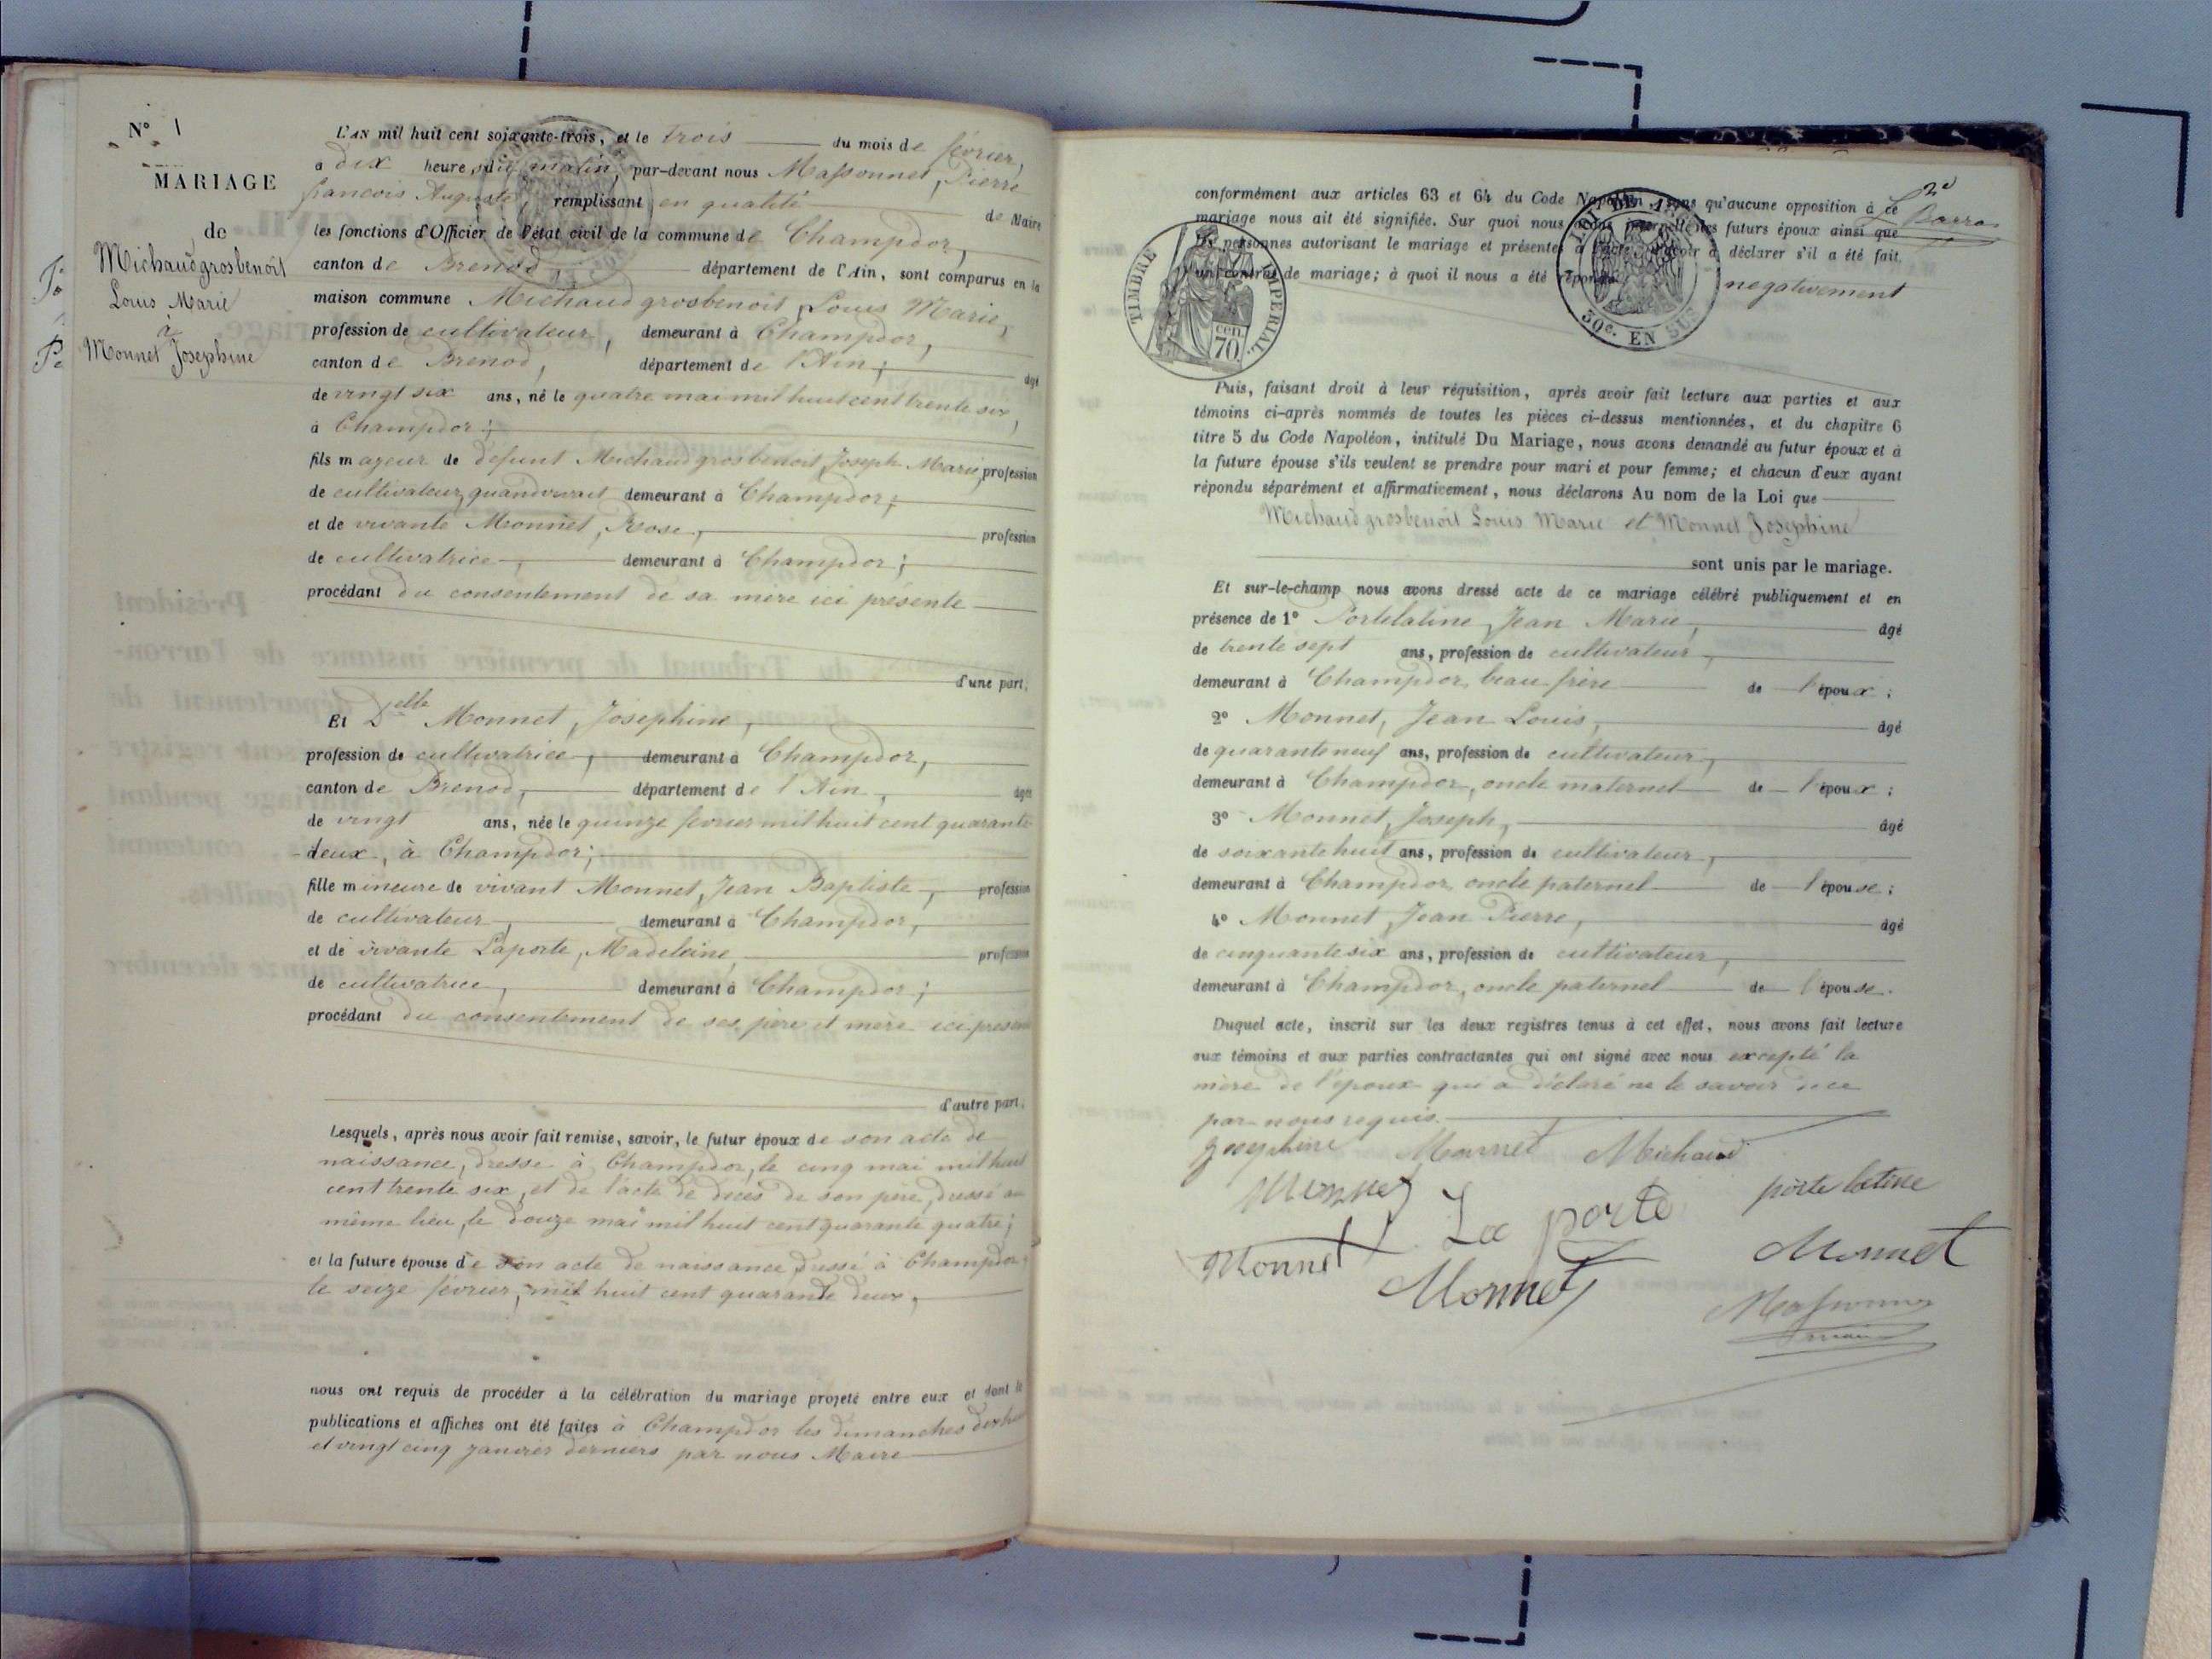 N° 1
MARIAGE
de
Michaud grosbenoit
Louis Marie
à
Monnet Josephine
L'AN mil huit cent soixante-trois, et le trois du mois de février,
à dix heures du matin, par-devant nous Massonnet, Pierre
françois Auguste, remplissant en qualité de Maire
les fonctions d'Officier de l'état civil de la commune de Champdor,
canton de Brenod, département de l'Ain, sont comparus en la
maison commune Michaud grosbenoit, Louis Marie,
profession de cultivateur, demeurant à Champdor,
canton de Brenod, département de l'Ain, âgé
de vingt six ans, né le quatre mai mil huit cent trente six,
à Champdor;
fils majeur de défunt Michaud grosbenoit Joseph Marie, profession
de cultivateur, quand vivait demeurant à Champdor;
et de vivante Monnet, Rose, profession
de cultivatrice, demeurant à Champdor;
procédant du consentement de sa mère ici présente
d'une part,
Et Delle Monnet, Josephine,
profession de cultivatrice, demeurant à Champdor,
canton de Brenod, département de l'Ain, âgée
de vingt ans, née le quinze février mil huit cent quarante
deux, à Champdor;
fille mineure de vivant Monnet, Jean Baptiste, profession
de cultivateur, demeurant à Champdor,
et de vivante Laporte, Madeleine, profession
de cultivatrice, demeurant à Champdor;
procédant du consentement de ses père et mère ici présens
d'autre part.
Lesquels, après nous avoir fait remise, savoir, le futur époux de son acte de
naissance, dressé à Champdor, le cinq mai mil huit
cent trente six, et de l'acte de décès de son père, dressé au
même lieu, le douze mai mil huit cent quarante quatre;
et la future épouse de son acte de naissance dressé à Champdor
le seize février, mil huit cent quarante deux,
nous ont requis de procéder à la célébration du mariage projeté entre eux et dont les
publications et affiches ont été faites à Champdor les dimanches dix huit
et vingt cinq janvier derniers par nous Maire
2e
conformément aux articles 63 et 64 du Code Napoléon, sans qu'aucune opposition à ce
mariage nous ait été signifiée. Sur quoi nous avons interpellé les futurs époux ainsi que
les personnes autorisant le mariage et présentes à l'acte d'avoir à déclarer s'il a été fait
un contrat de mariage; à quoi il nous a été répondu negativement
TIMBRE IMPERIAL
70 cen
30c. EN SUS
Puis, faisant droit à leur réquisition, après avoir fait lecture aux parties et aux
témoins ci-après nommés de toutes les pièces ci-dessus mentionnées, et du chapitre 6
titre 5 du Code Napoléon, intitulé Du Mariage, nous avons demandé au futur époux et à
la future épouse s'ils veulent se prendre pour mari et pour femme; et chacun d'eux ayant
répondu séparément et affirmativement, nous déclarons Au nom de la Loi que
Michaud grosbenoit Louis Marie et Monnet Josephine
sont unis par le mariage.
Et sur-le-champ nous avons dressé acte de ce mariage célébré publiquement et en
présence de 1° Portelatine, Jean Marie, âgé
de trente sept ans, profession de cultivateur,
demeurant à Champdor, beau frère de l'époux;
2° Monnet, Jean Louis, âgé
de quarante neuf ans, profession de cultivateur,
demeurant à Champdor, oncle maternel de l'époux;
3° Monnet, Joseph, âgé
de soixante huit ans, profession de cultivateur,
demeurant à Champdor, oncle paternel de l'épouse;
4° Monnet, Jean Pierre, âgé
de cinquante six ans, profession de cultivateur,
demeurant à Champdor, oncle paternel de l'épouse.
Duquel acte, inscrit sur les deux registres tenus à cet effet, nous avons fait lecture
aux témoins et aux parties contractantes qui ont signé avec nous excepté la
mère de l'époux qui a déclaré ne le savoir de ce
par nous requis.
Josephine Monnet Michaud
Monnet La porte porte latine
Monnet Monnet Monnet
Massonnet
maire